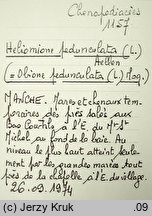 Chenopodiacées
1157
Heliomione pedunculata (L.)
Aellen
(= Obione pedunculata (L.) Moq.)
MANCHE. Mares et chenaux tem-
poraires des prés salés aux
Bas Courtils à l'E. du Mt-St
Michel au fond de la baie. Au
niveau le plus haut atteint seule-
ment par les grandes marées tout
près de la chapelle à l'E. du village.
26.09.1974
(c) Jerzy Kruk
.09